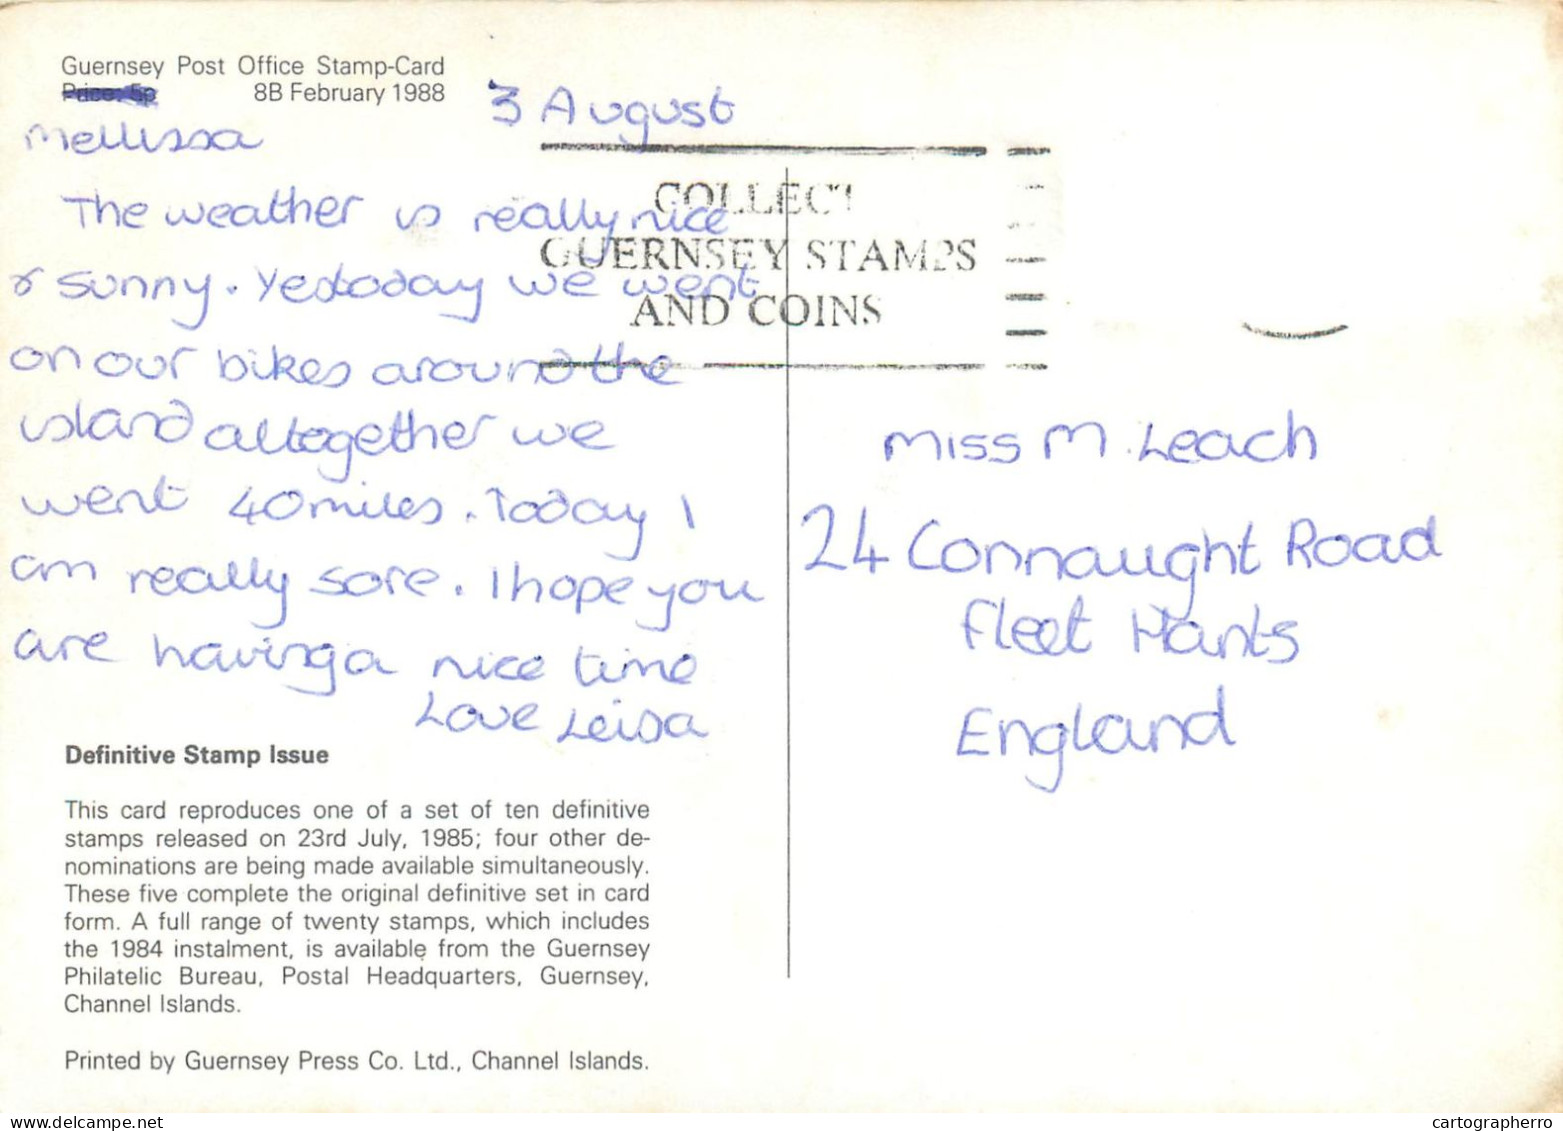 Guernsey Post Office Stamp-Card
Price: 5p 8B February 1988
3 August
Mellissa
The weather is really nice
& sunny. Yestoday we went
on our bikes around the
island altogether we
went 40 miles. Today I
am really sore. I hope you
are having a nice time
Love Leisa
COLLECT
GUERNSEY STAMPS
AND COINS
Miss M. Leach
24 Connaught Road
Fleet Hants
England
Definitive Stamp Issue
This card reproduces one of a set of ten definitive
stamps released on 23rd July, 1985; four other de-
nominations are being made available simultaneously.
These five complete the original definitive set in card
form. A full range of twenty stamps, which includes
the 1984 instalment, is available from the Guernsey
Philatelic Bureau, Postal Headquarters, Guernsey,
Channel Islands.
Printed by Guernsey Press Co. Ltd., Channel Islands.
cartographerro